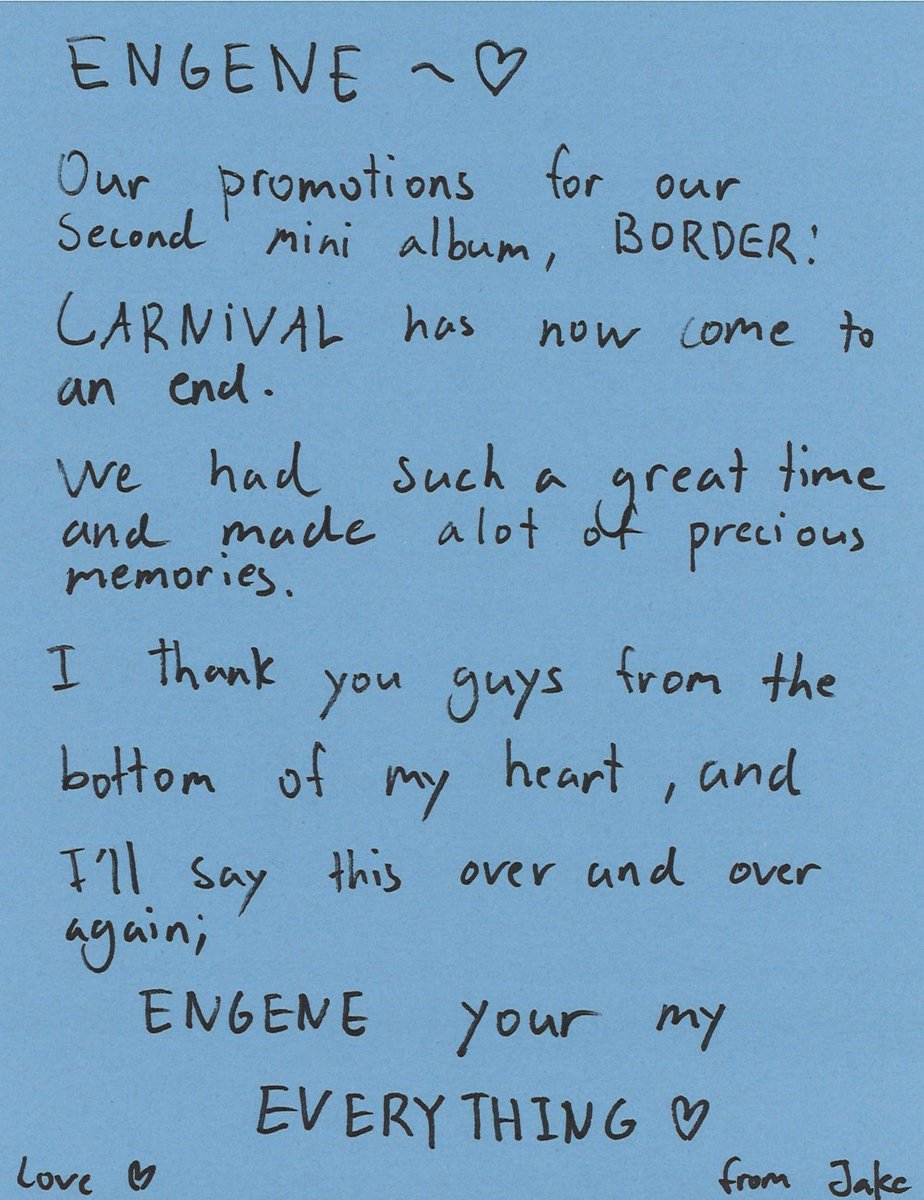 ENGENE ~ ♡
Our promotions for our
Second mini album, BORDER:
CARNiVAL has now come to
an end.
We had such a great time
and made alot of precious
memories.
I thank you guys from the
bottom of my heart, and
I'll say this over and over
again;
ENGENE your my
EVERYTHING ♡
Love ♡ from Jake